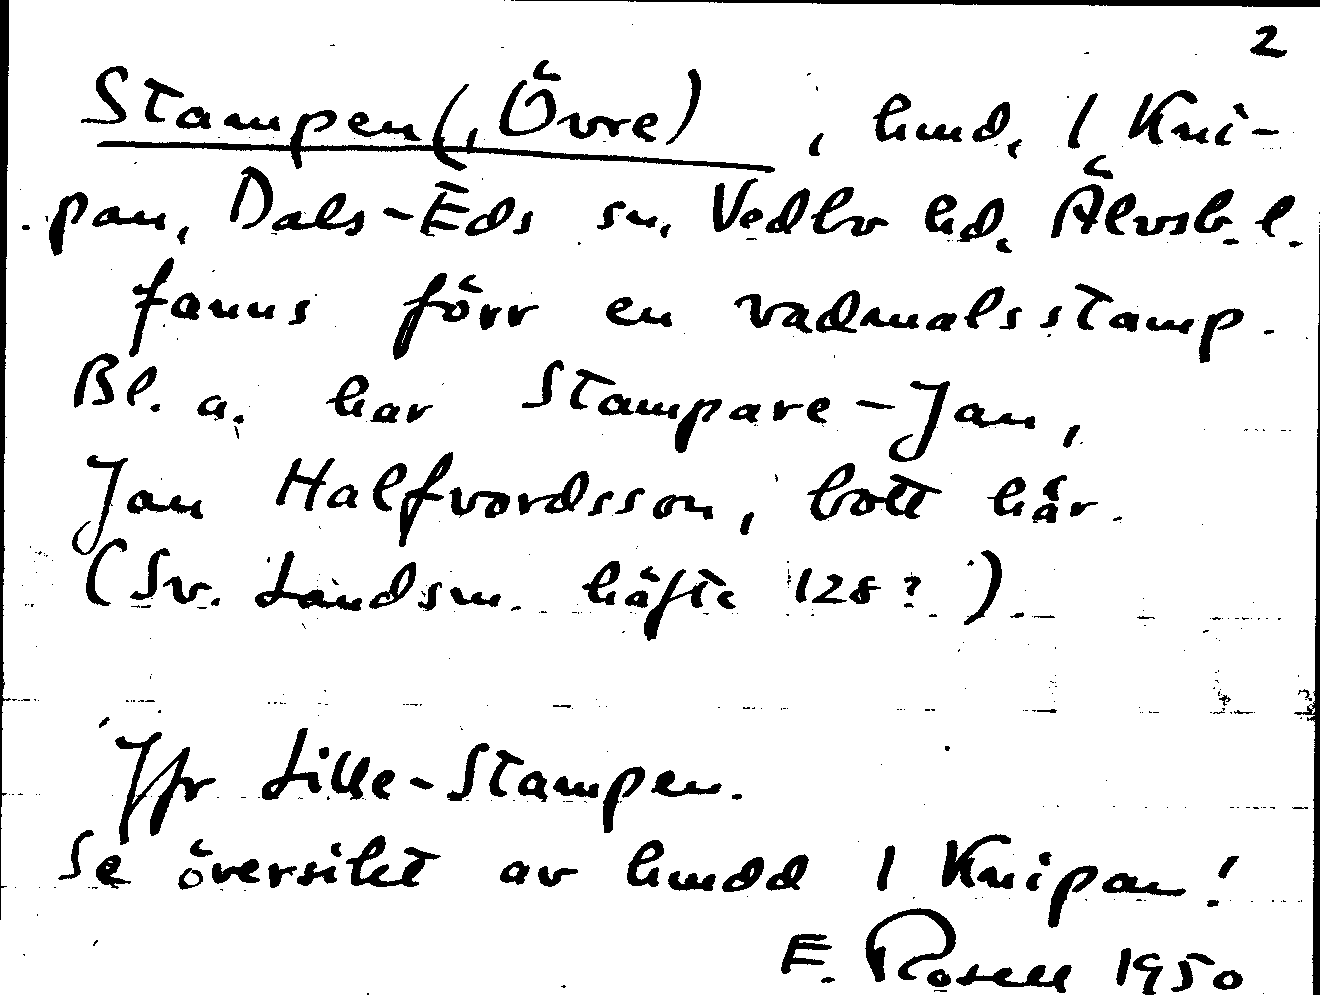 2
Stampen(, Övre), hmd, 1 Kni-
pan, Dals-Eds sn, Vedbo hd, Älvsb. l.
fanns förr en vadmalsstamp.
Bl. a. har Stampare-Jan,
Jan Halfvordsson, bott här.
(Sv. Landsm. häfte 128?).
Jfr Lille-Stampen.
Se översikt av hmdd 1 Knipan!
E. Rosell 1950